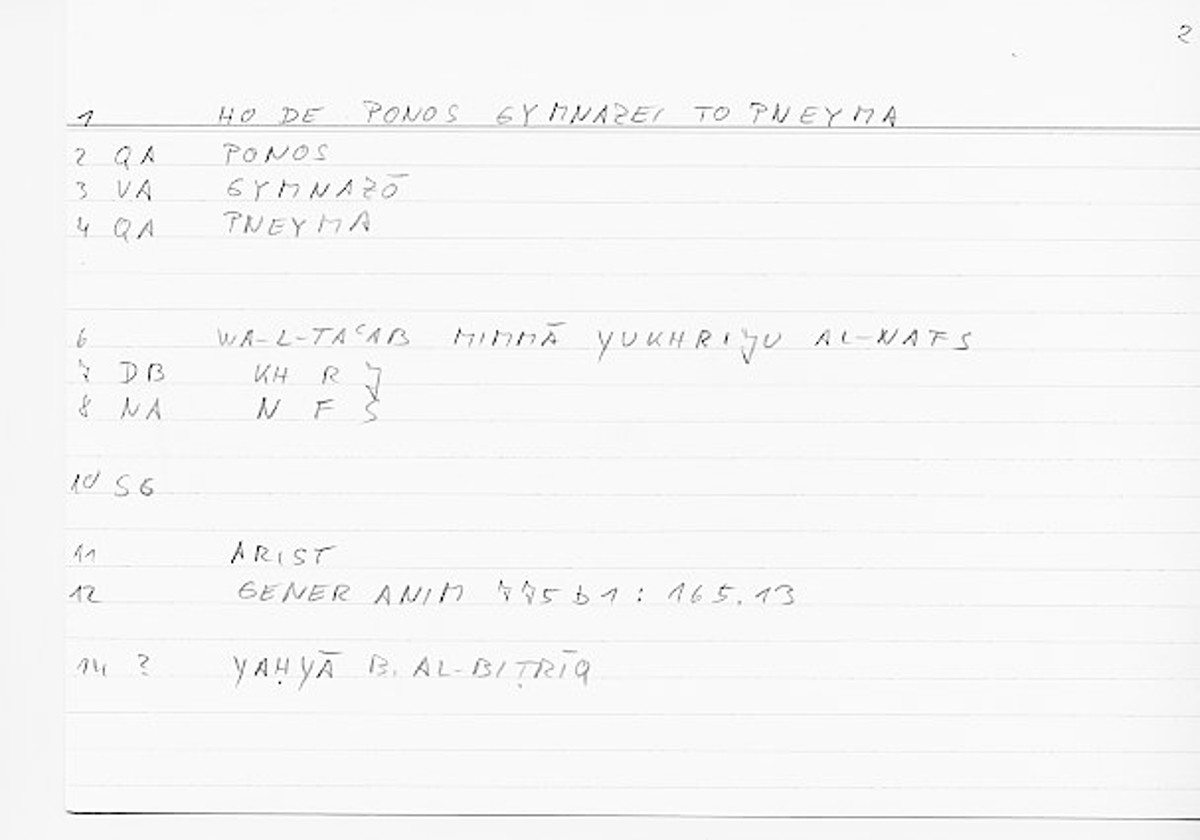 2
1 HO DE PONOS GYMNAZEI TO PNEYMA
2 QA PONOS
3 VA GYMNAZŌ
4 QA PNEYMA
6 WA-L-TAʿAB MIMMĀ YUKHRIJU AL-NAFS
7 DB KH R J
8 NA N F S
10 SG
11 ARIST
12 GENER ANIM 775 b 1 : 165.13
14 ? YAḤYĀ B. AL-BIṬRĪQ